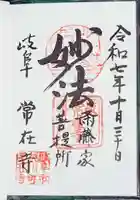 令和七年十月三十日
斎藤家
菩提所
妙法
岐阜
常在寺